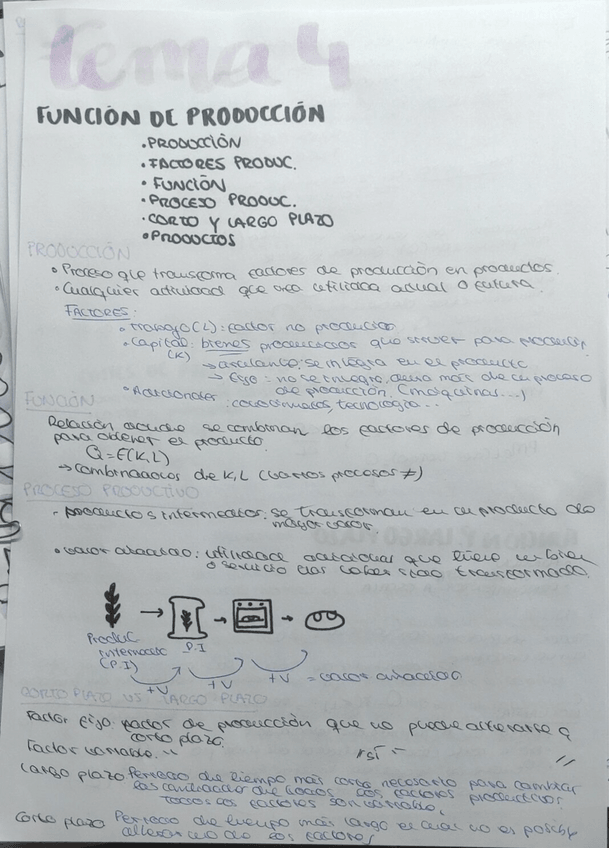 Tema 4
FUNCIÓN DE PRODUCCIÓN
• PRODUCCIÓN
• FACTORES PRODUC.
• FUNCIÓN
• PROCESO PRODUC.
• CORTO Y LARGO PLAZO
• PRODUCTOS
PRODUCCIÓN
• Proceso que transforma factores de producción en productos.
• Cualquier actividad que crea utilidad actual o futura.
FACTORES:
• trabajo (L): factor no producido
• Capital: bienes producidos que sirven para producción
(K)
→ circulante: se integra en el producto
→ fijo: no se integra, dura más de un proceso
de producción (máquinas...)
• Adicionales: conocimientos, tecnología...
FUNCIÓN
Relación de cómo se combinan los factores de producción
para obtener el producto.
Q = F(K, L)
→ combinaciones de K, L (varios procesos ≠)
PROCESO PRODUCTIVO
- productos intermedios: se transforman en un producto de
mayor valor.
• valor añadido: utilidad adicional que tiene un bien
o servicio tras haber sido transformado.
Produc.
intermedio
(P.I)
P.I
+V +V +V = valor añadido
CORTO PLAZO VS LARGO PLAZO
Factor fijo: factor de producción que no puede alterarse a
corto plazo.
Factor variable: " " sí " "
Largo plazo Periodo de tiempo más corto necesario para cambiar
las cantidades de todos los factores productivos.
todos los factores son variable,
Corto plazo Periodo de tiempo más largo el cual no es posible
alterar uno de los factores,